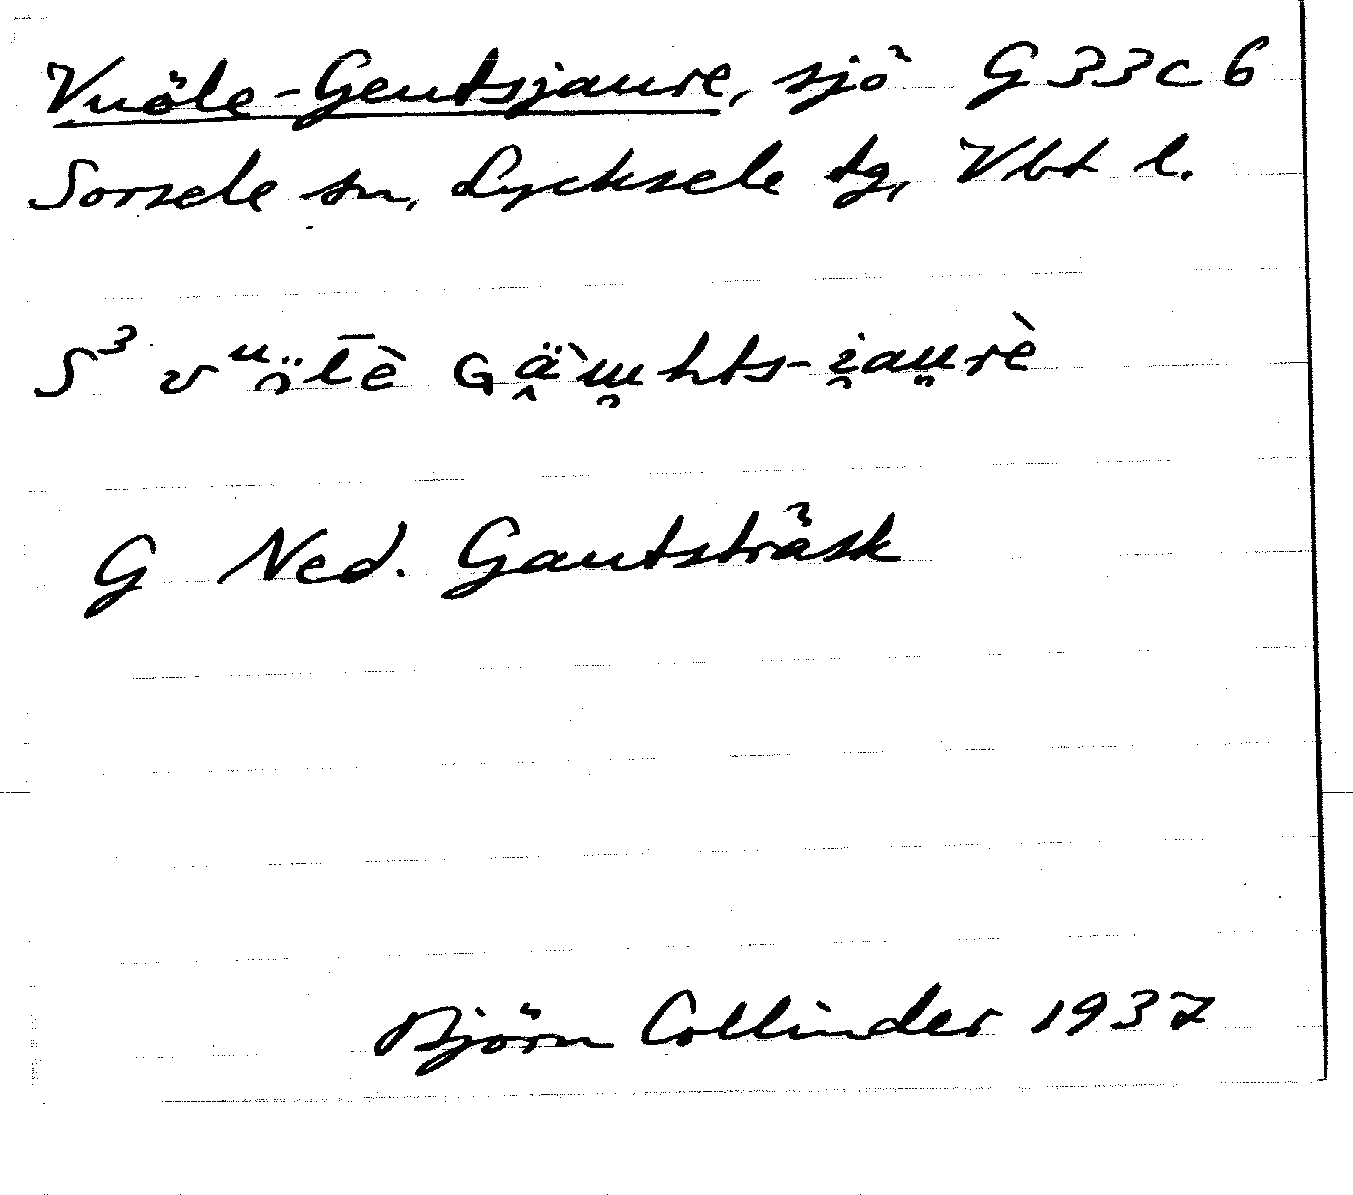 Vuöle-Geutsjaure, sjö G 33 c 6
Sorsele sn, Lycksele tg, Vbt l.
S³ vᵘö̯l̄ὲ Gä̭̀u̯hts-i̯au̯rè
G Ned. Gautsträsk
Björn Collinder 1937